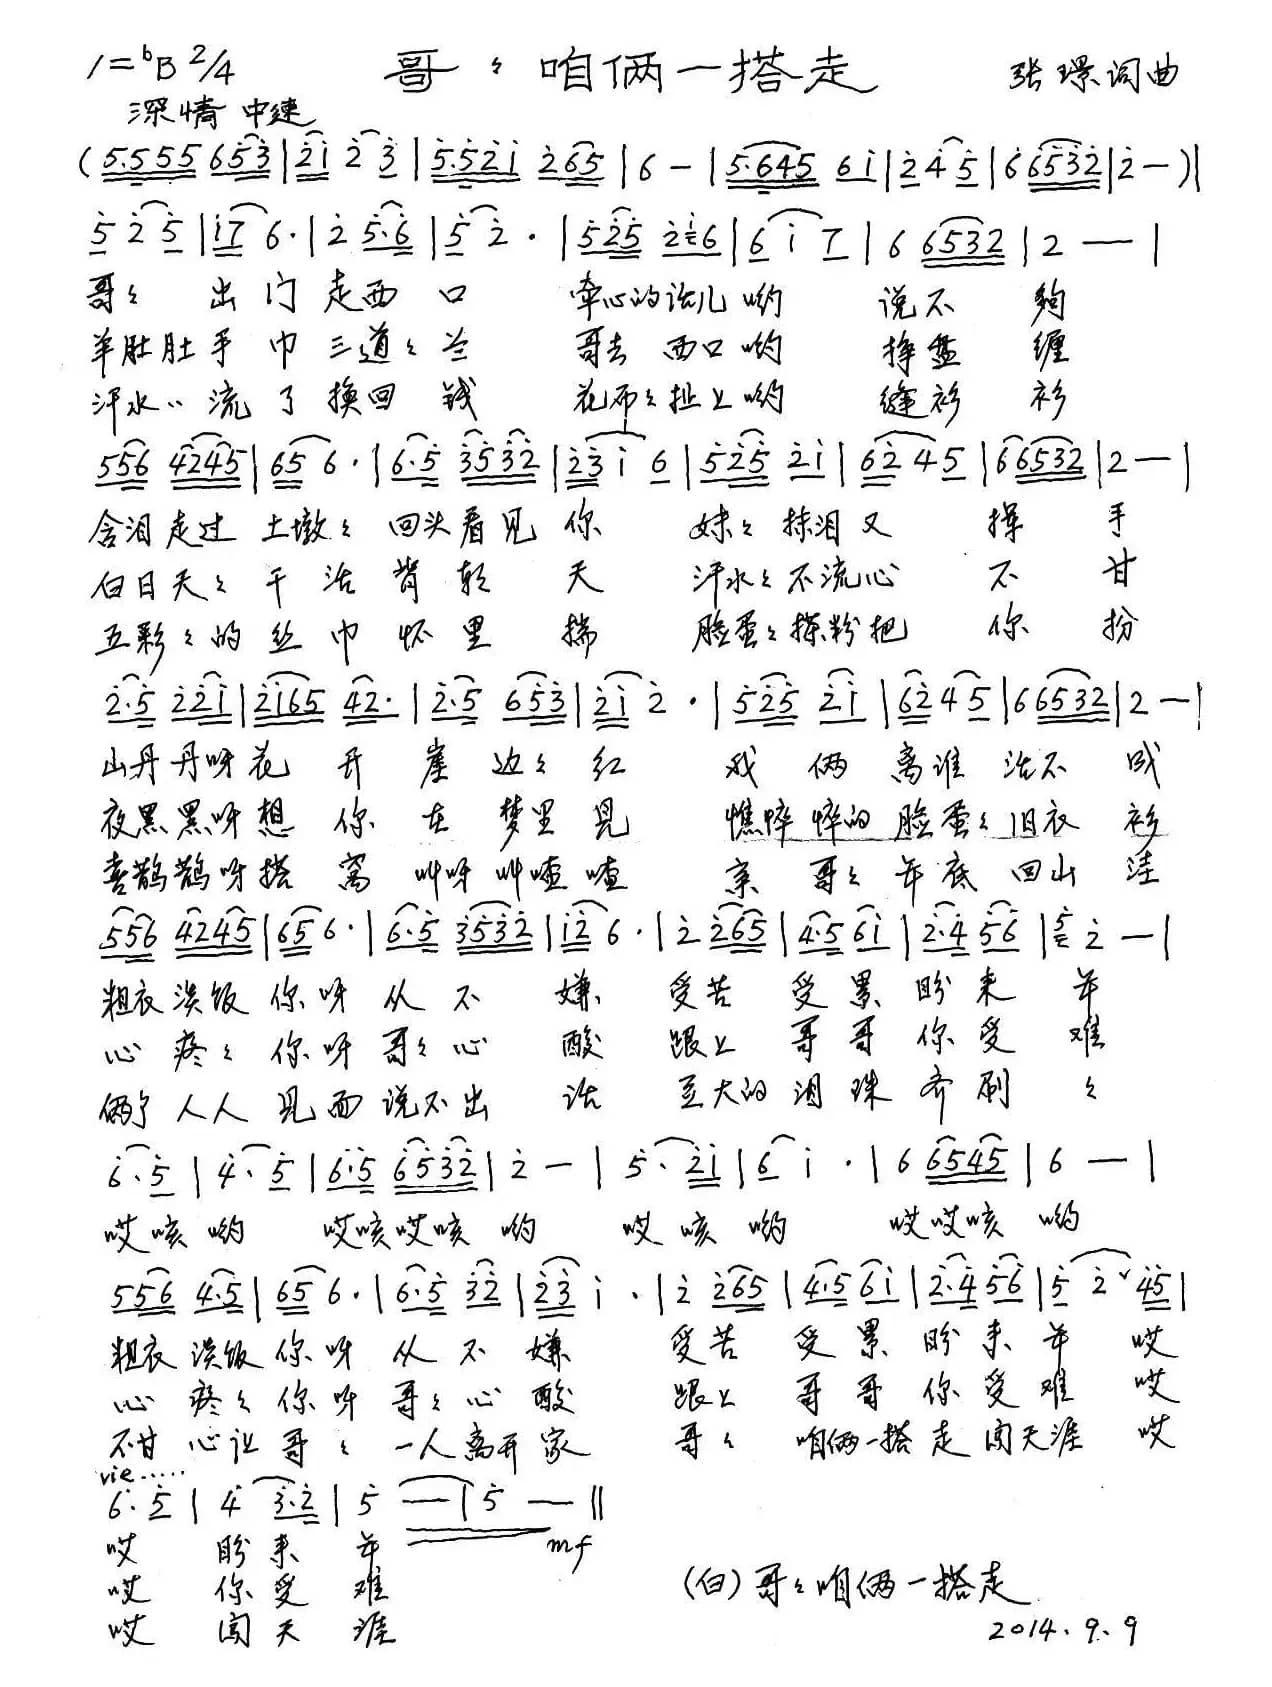 1=♭B 2/4 哥々咱俩一搭走 张璟词曲
深情 中速
(5.555 653|21 2 3|5.521 265|6 -|5.645 61|2 4 5|6 6532|2 -)|
5 2 5|17 6.|2 5.6|5 2.|525 216|6 1 7|6 6532|2 — |
哥々 出门走西口 牵心的话儿哟 说不夠
羊肚肚手巾三道々兰 哥去西口哟 挣盘缠
汗水々流了换回钱 花布々扯上哟 缝衫衫
556 4245|65 6.|6.5 3532|23 1 6|525 21|62 4 5|66532|2 — |
含泪走过土墩々回头看见你 妹々抹泪又挥手
白日天々干活背朝天 汗水々不流心不甘
五彩々的丝巾怀里揣 脸蛋々搽粉把你扮
2.5 221|2165 42.|2.5 653|21 2.|525 21|62 4 5|6 6532|2 — |
山丹丹呀花开崖边々红 我俩离谁活不成
夜黑黑呀想你在梦里见 憔悴悴的脸蛋々旧衣衫
喜鹊鹊呀搭窝叫呀叫喳喳 亲哥々年底回山洼
556 4245|65 6.|6.5 3532|12 6.|2 265|4.5 61|2.4 56|5 2 — |
粗衣淡饭你呀从不嫌 受苦受累盼来年
心疼々你呀哥々心酸 跟上哥哥你受难
俩个人人见面说不出话 豆大的泪珠齐刷々
6. 5|4. 5|6.5 6532|2 — |5. 21|6 1.|6 6545|6 — |
哎咳哟 哎咳哎咳哟 哎咳哟 哎哎咳哟
556 4.5|65 6.|6.5 32|23 1.|2 265|4.5 61|2.4 56|5 2ˇ45|
粗衣淡饭你呀从不嫌 受苦受累盼来年 哎
心疼々你呀哥々心酸 跟上哥哥你受难 哎
不甘心让哥々一人离开家 哥々咱俩一搭走闯天涯 哎
vie.....
6. 5|4 3.2|5 — |5 — ‖
mf
哎 盼来年
哎 你受难
哎 闯天涯
(白)哥々咱俩一搭走
2014.9.9